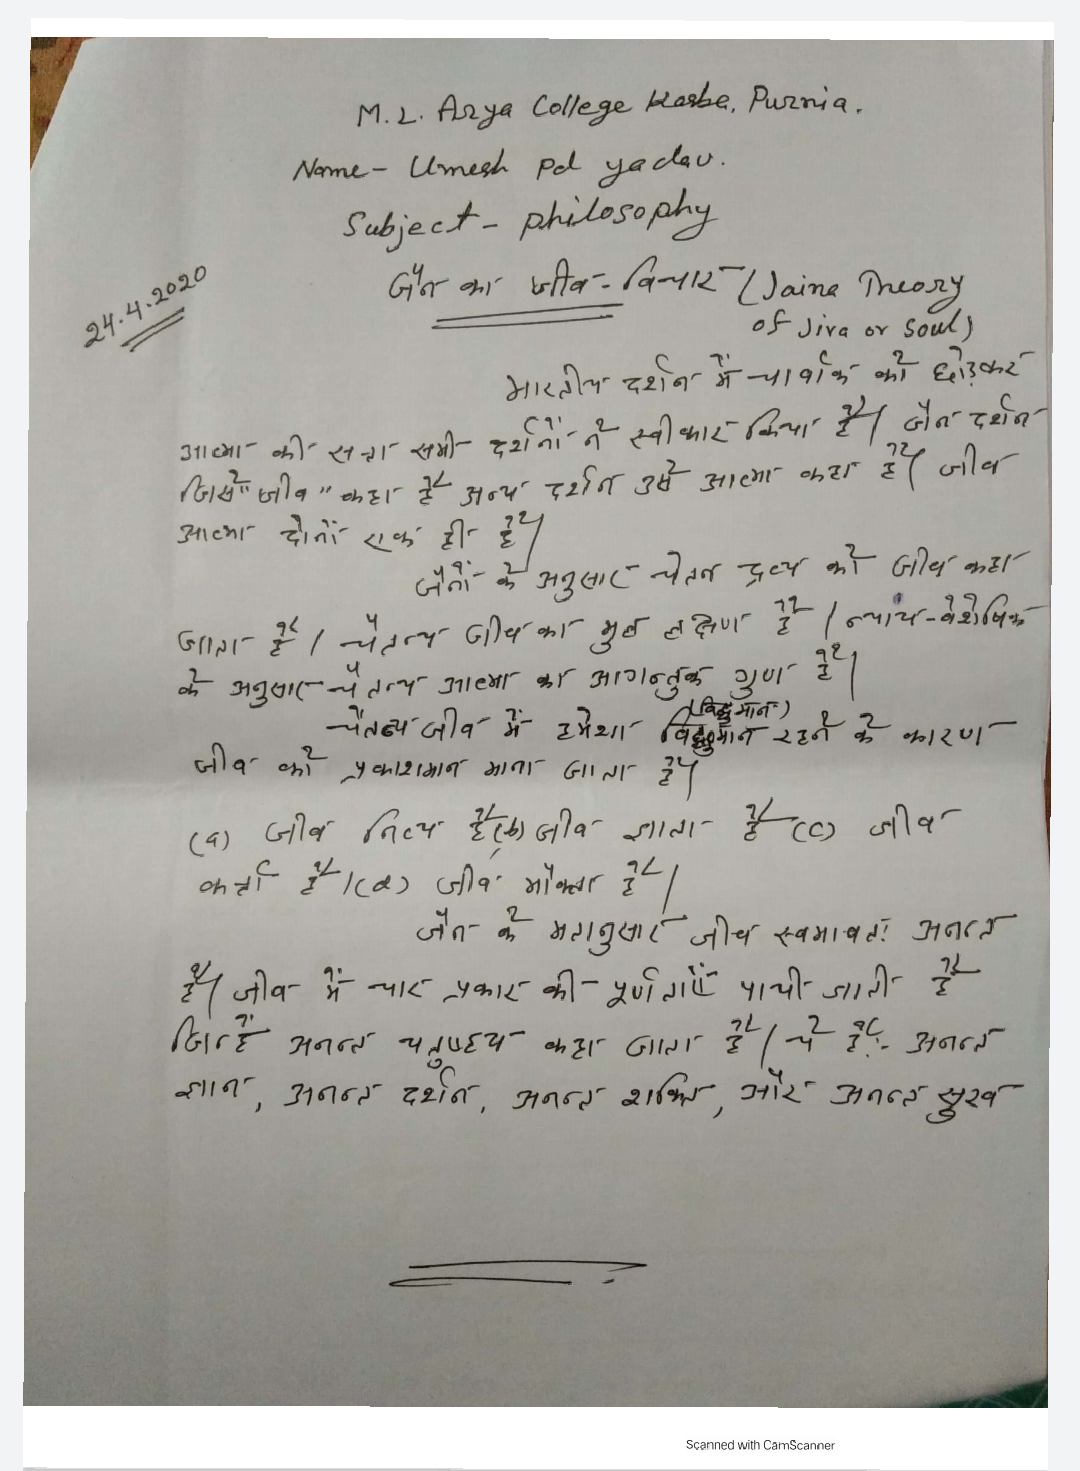 M.L. Arya College Kasba, Purnia.
Name- Umesh Pd yadav.
Subject- philosophy
24.4.2020
जैन का जीव-विचार (Jaina Theory
of Jiva or Soul)
भारतीय दर्शन में चार्वाक को छोड़कर
आत्मा की सत्ता सभी दर्शनों ने स्वीकार किया है। जैन दर्शन
जिसे "जीव" कहा है अन्य दर्शन उसे आत्मा कहा है। जीव
आत्मा दोनों एक ही है।
जैनों के अनुसार चेतन द्रव्य को जीव कहा
जाता है। चैतन्य जीव का मुल लक्षण है। न्याय-वैशेषिक
के अनुसार चैतन्य आत्मा का आगन्तुक गुण है।
(विद्यमान)
चैतन्य जीव में हमेशा विद्यमान रहने के कारण
जीव को प्रकाशमान माना जाता है।
(a) जीव नित्य है, (b) जीव ज्ञाता है (c) जीव
कर्ता है। (d) जीव भोक्ता है।
जैन के मतानुसार जीव स्वभावत: अनन्त
है। जीव में चार प्रकार की पूर्णताएँ पायी जाती है
जिन्हें अनन्त चतुष्टय कहा जाता है। ये है:- अनन्त
ज्ञान, अनन्त दर्शन, अनन्त शक्ति, और अनन्त सुख
Scanned with CamScanner